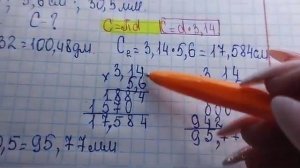 5,6см; 30,5мм.
C ?
C=πd C=d·3,14
32=100,48дм. C₂=3,14·5,6=17,584см
3,14 3 14
× 5,6
1884
1570
17,584 948
0,5=95,77мм